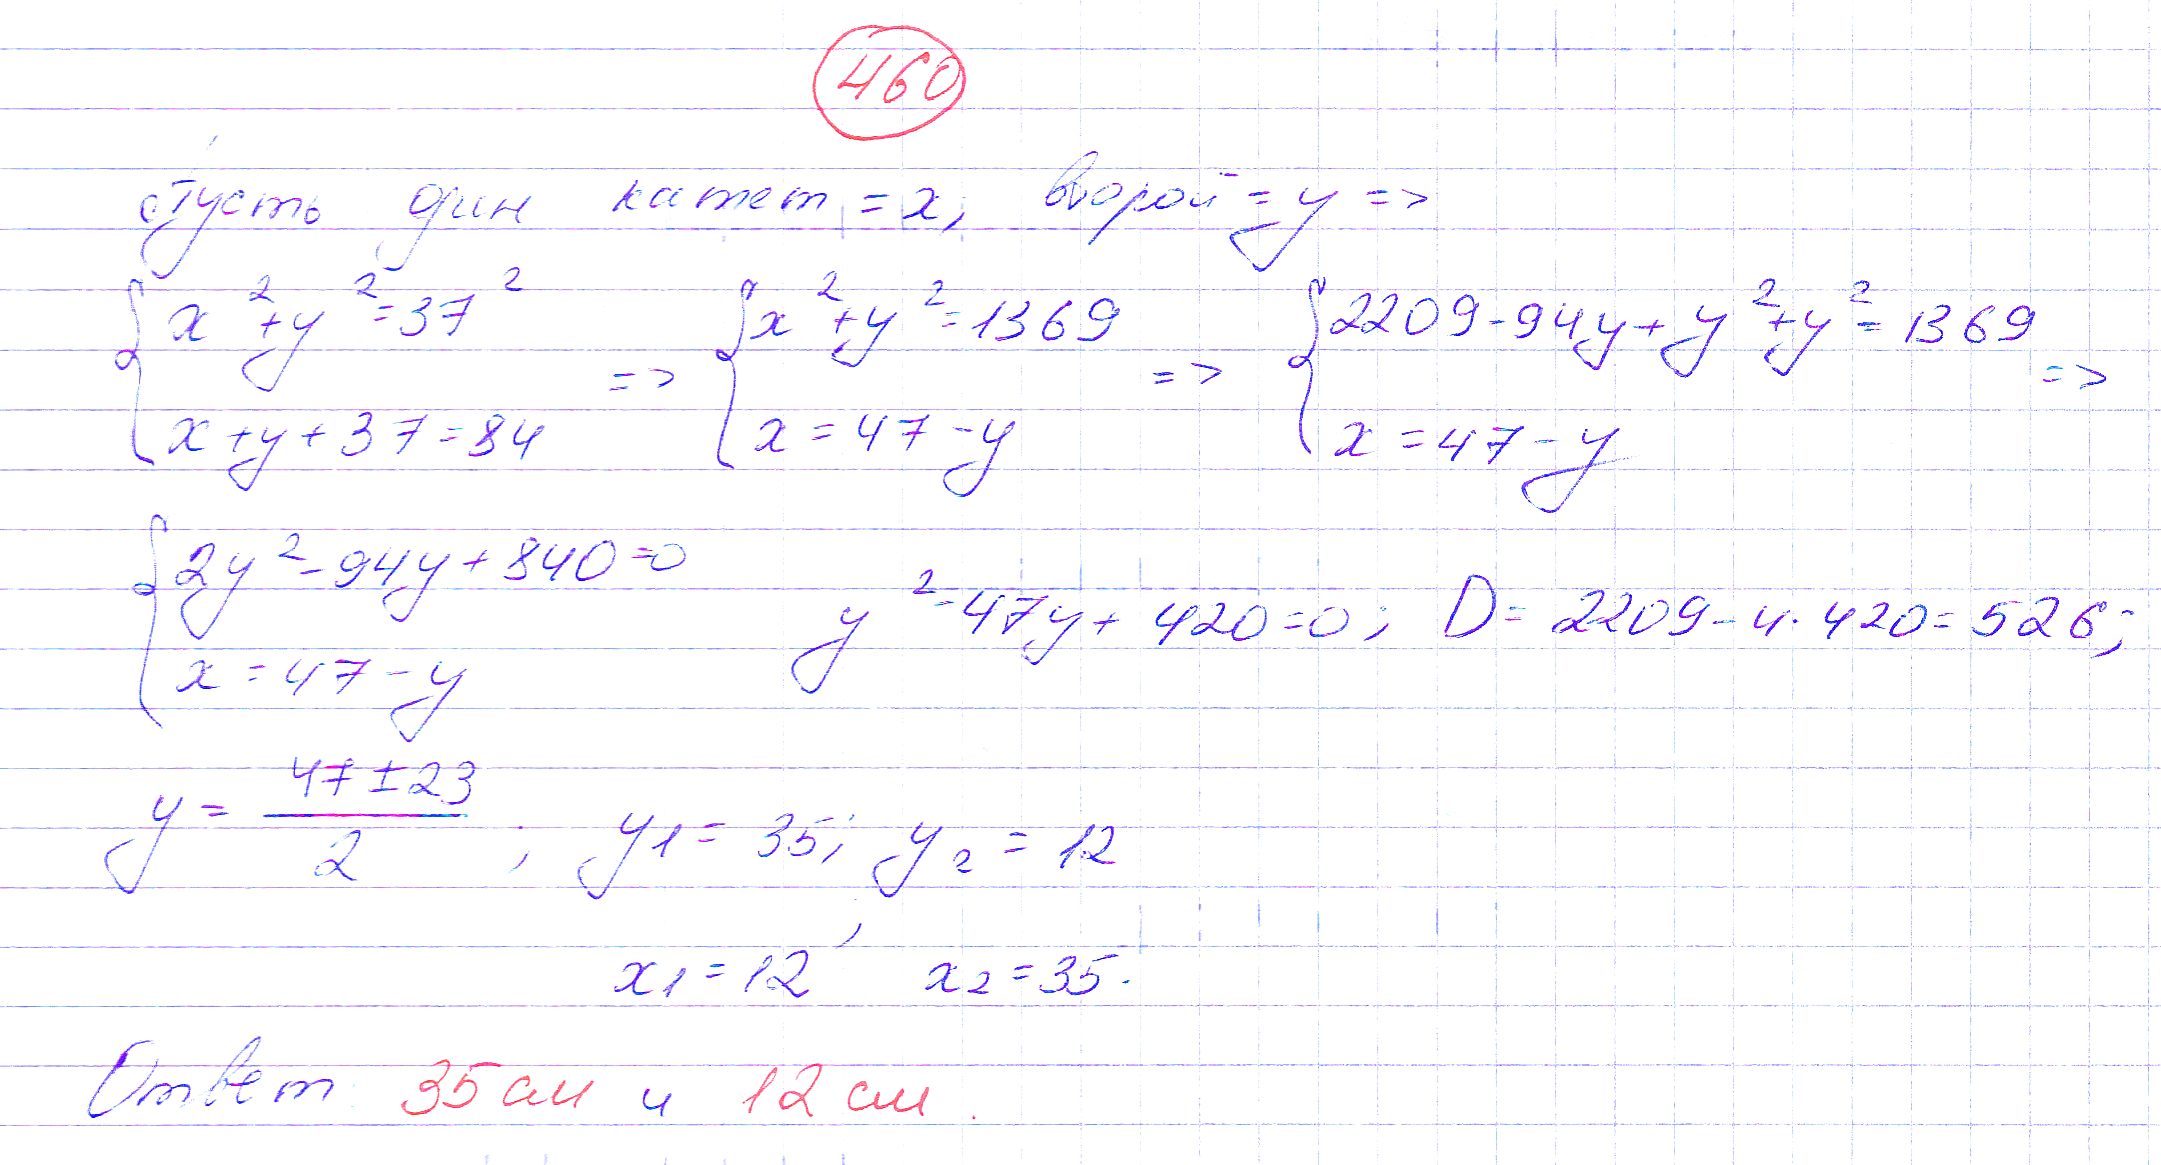 460
Пусть один катет = x, второй = y =>
{ x² + y² = 37² => { x² + y² = 1369 => { 2209 - 94y + y² + y² = 1369 =>
x + y + 37 = 84 x = 47 - y x = 47 - y
{ 2y² - 94y + 840 = 0 y² - 47y + 420 = 0; D = 2209 - 4 · 420 = 526;
x = 47 - y
y = (47 ± 23) / 2 ; y1 = 35; y2 = 12
x1 = 12, x2 = 35.
Ответ 35 см и 12 см.